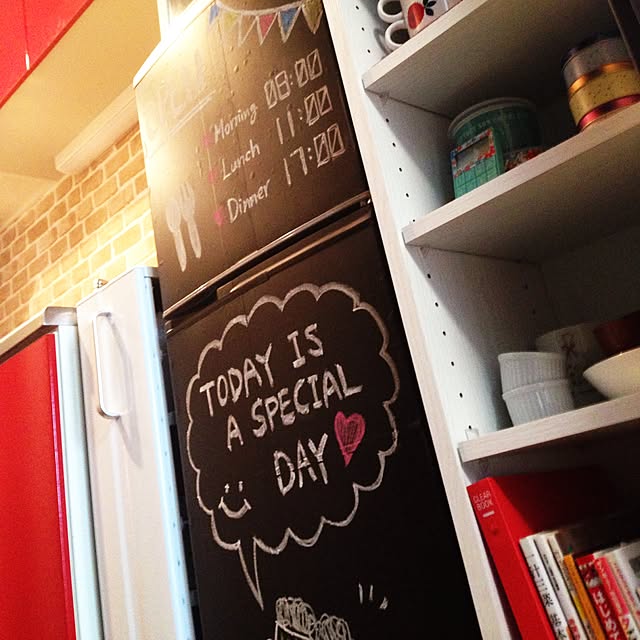 OPEN
Morning 08:00
Lunch 11:00
Dinner 17:00
TODAY IS
A SPECIAL
DAY
CLEAR
BOOK